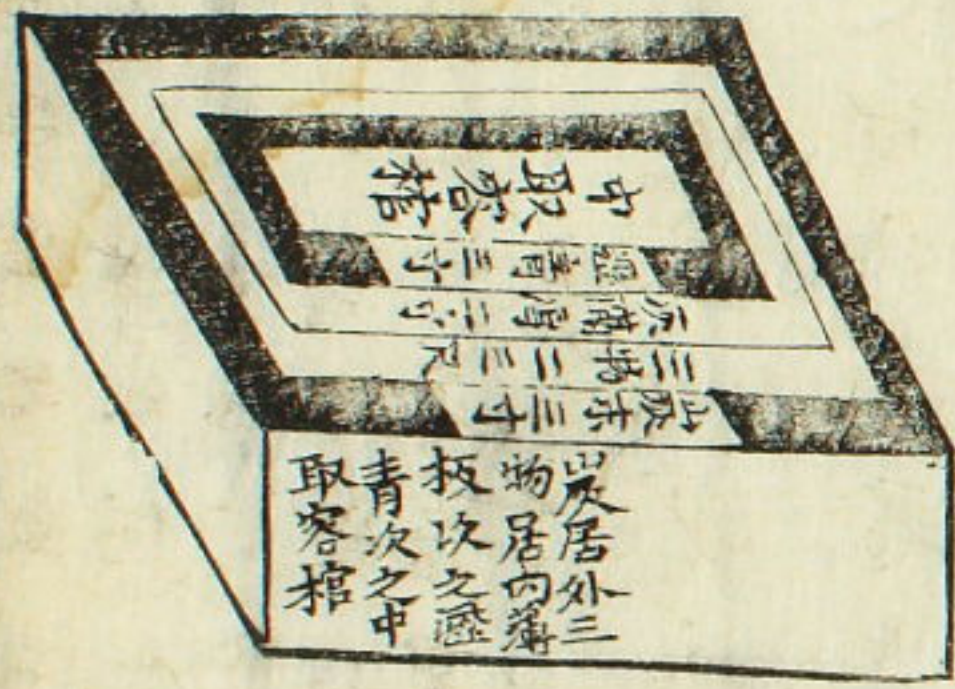 中取容棺
瀝青厚三寸
灰隔厚二寸
三物二三尺
炭末三寸
炭居外三
物居內薄
板次之瀝
青次之中
取容棺